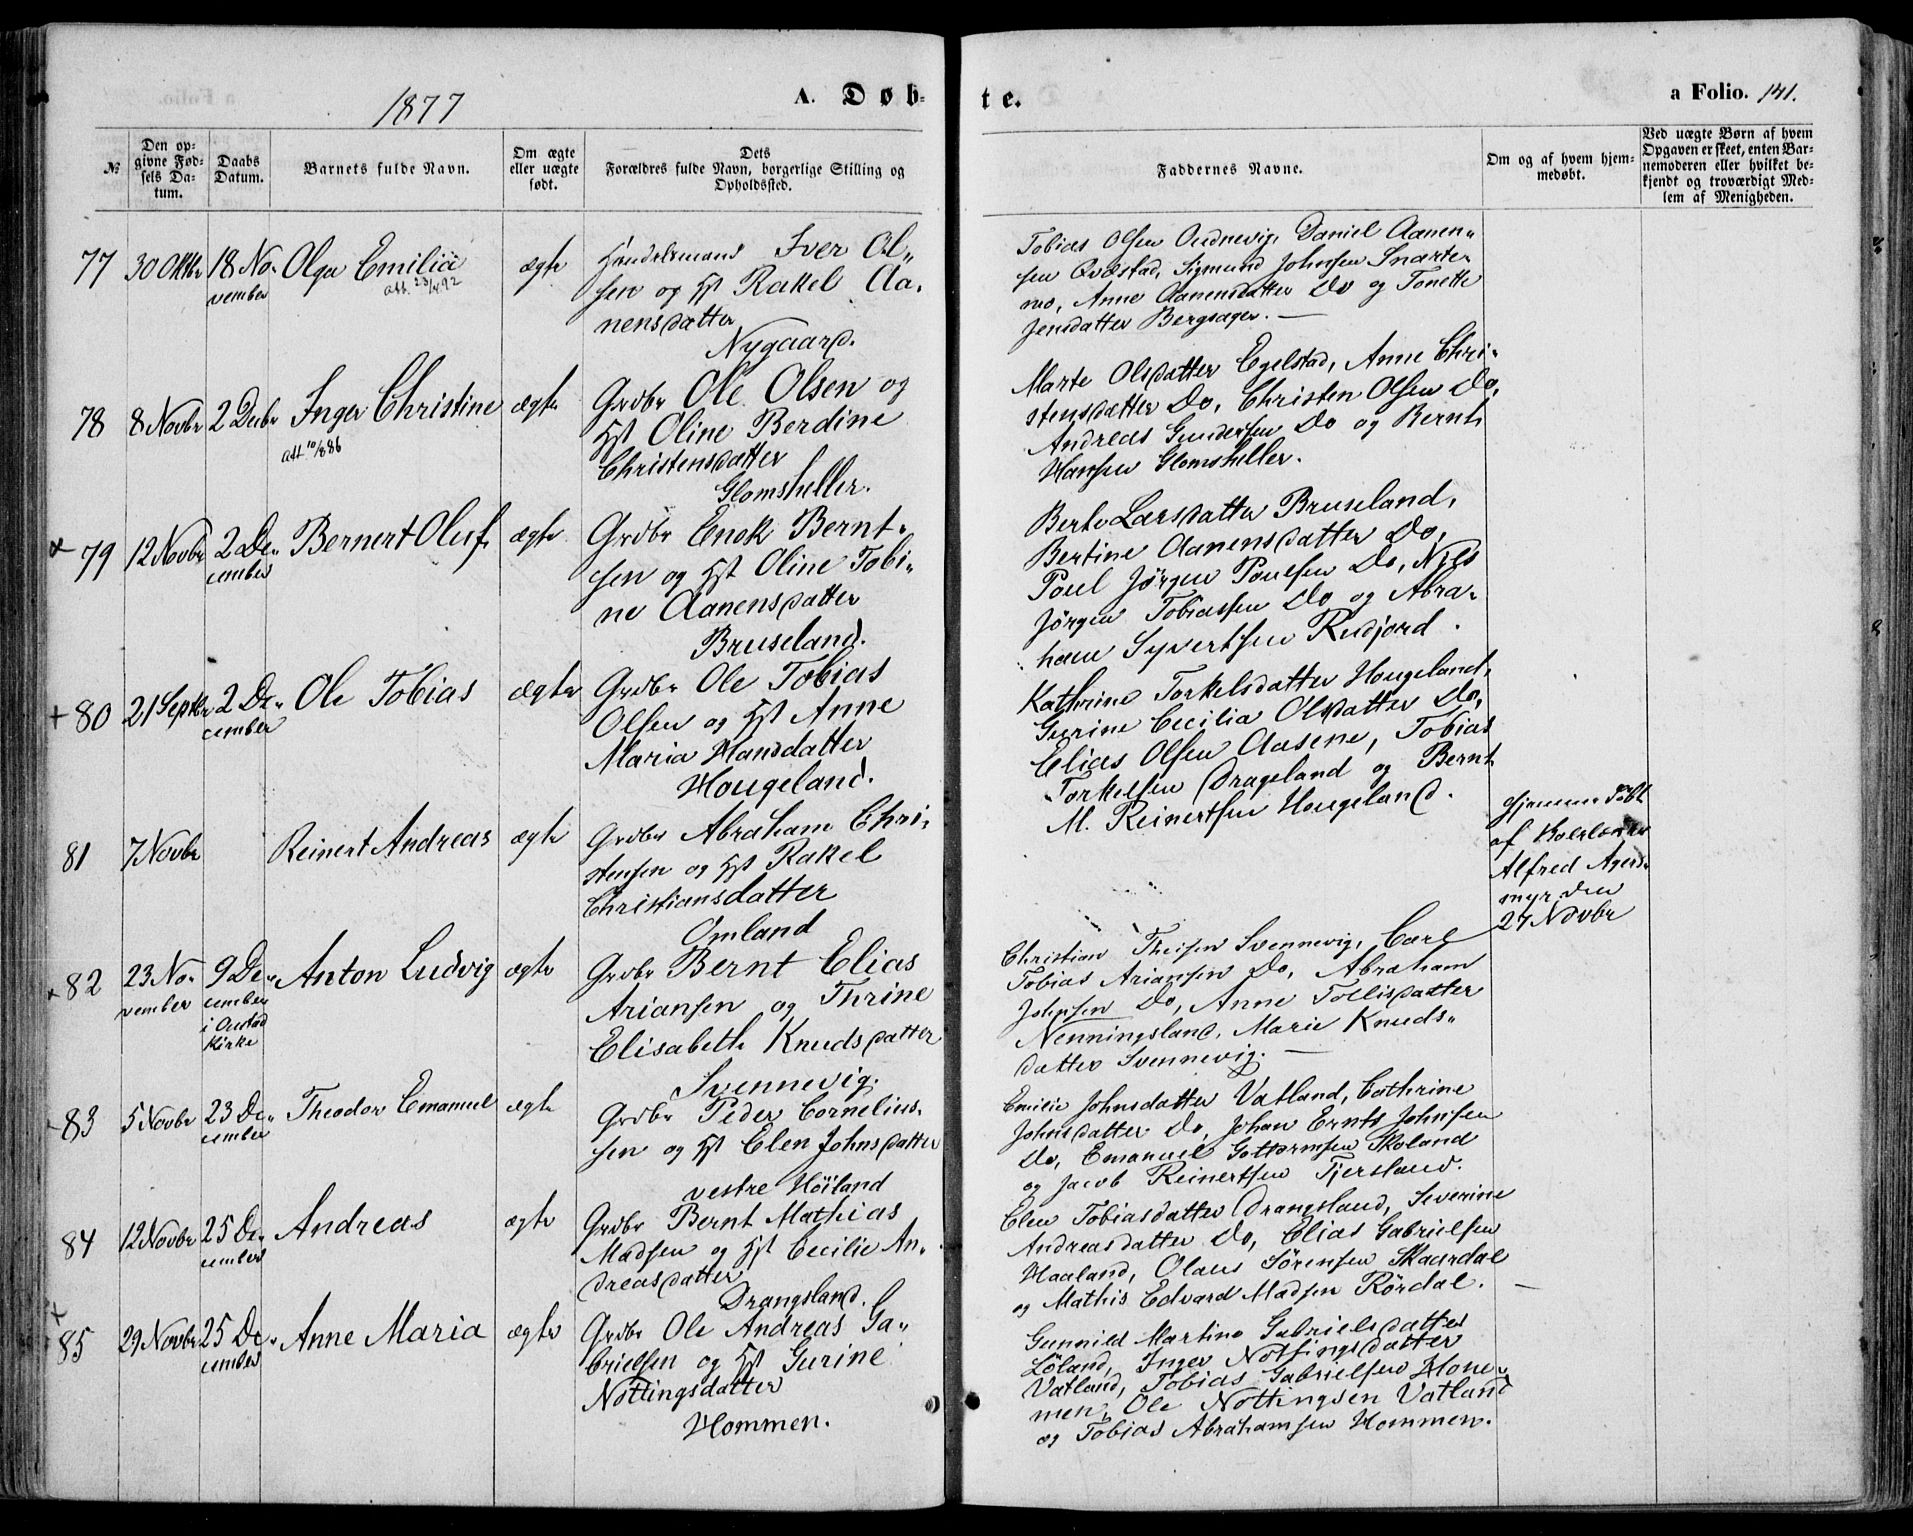 1877
A. Døb-
te.
a Folio. 141.
№
Den op-
givne Fød-
sels Da-
tum.
Daabs
Datum.
Barnets fulde Navn.
Om ægte
eller uægte
født.
Dets
Forældres fulde Navn, borgerlige Stilling og
Opholdssted.
Faddernes Navne.
Om og af hvem hjem-
medøbt.
Ved uægte Børn af hvem
Opgaven er skeet, enten Bar-
nemoderen eller hvilket be-
kjendt og troværdigt Med-
lem af Menigheden.
77
30 Oktbr
18 No-
vember
Olga Emilia
att. 23/4 92
ægte
Handelsmand Iver Ol-
sen og Hst Rakel Aa-
nensdatter
Nygaard.
Tobias Olsen Oudnevig, Daniel Aanen-
sen Qvæstad, Sigmund Johnsen Snarte-
mo, Anne Aanensdatter Do og Tonette
Jensdatter Bergsager.
78
8 Novbr
2 Decbr
Inger Christine
att. 10/8 86
ægte
Grdbr Ole Olsen og
Hst Oline Berdine
Christensdatter
Glomsheller.
Marte Olsdatter Egelstad, Anne Chri-
stensdatter Do, Christen Olsen Do,
Andreas Gundersen Do og Bernt
Hansen Glomsheller.
79
12 Novbr
2 De-
cember
Bernert Oluf
ægte
Grdbr Enok Bernt-
sen og Hst Oline Tobi-
ne Aanensdatter
Bruseland.
Berte Larsdatter Bruseland,
Bertine Aanensdatter Do,
Poul Jørgen Poulsen Do, Nils
Jørgen Tobiassen Do og Abra-
ham Syvertsen Rudjord.
+ 80
21 Septbr
2 De-
cember
Ole Tobias
ægte
Grdbr Ole Tobias
Olsen og Hst Anne
Maria Hansdatter
Hougeland.
Kathrine Torkelsdatter Hougeland,
Gurine Cecilia Olsdatter Do,
Elias Olsen Aasene, Tobias
Torkelsen Drageland og Bernt
M. Reinertsen Hougeland.
81
7 Novbr
Reinert Andreas
ægte
Grdbr Abraham Chri-
stensen og Hst Rakel
Christiansdatter
Omland
Hjemmedøbt
af Kollærer
Alfred Agers-
myr den
27 Novbr
+ 82
23 No-
vember
9 De-
cember
i Oustad
Kirke
Anton Ludvig
ægte
Grdbr Bernt Elias
Ariansen og Thrine
Elisabeth Knudsdatter
Svennevig.
Christian Theisen Svennevig, Carl
Tobias Ariansen Do, Abraham
Johnsen Do, Anne Tollisdatter
Nenningsland, Marie Knuds-
datter Svennevig.
83
5 Novbr
23 De-
cember
Theodor Emanuel
ægte
Grdbr Peder Cornelius-
sen og Hst Elen Johnsdatter
vestre Höiland
Emilie Johnsdatter Vatland, Cathrine
Johnsdatter Do, Johan Ernts Johnsen
Do, Emanuel Gottormsen Skoland
og Jacob Reinertsen Tjersland.
84
12 Novbr
25 De-
cember
Andreas
ægte
Grdbr Bernt Mathias
Madsen og Hst Cecilie An-
dreasdatter
Drangsland.
Elen Tobiasdatter Drangsland, Severine
Andreasdatter Do, Elias Gabrielsen
Haaland, Olaus Sörensen Skaardal
og Mathis Edvard Madsen Rördal.
+
85
29 Novbr
25 De-
cember
Anne Maria
ægte
Grdbr Ole Andreas Ga-
brielsen og Hst Gurine
Nottingsdatter
Hommen.
Gunnild Martine Gabrielsdatter
Löland, Inger Nottingsdatter
Vatland, Tobias Gabrielsen Hom-
men, Ole Nottingsen Vatland
og Tobias Abrahamsen Hommen.